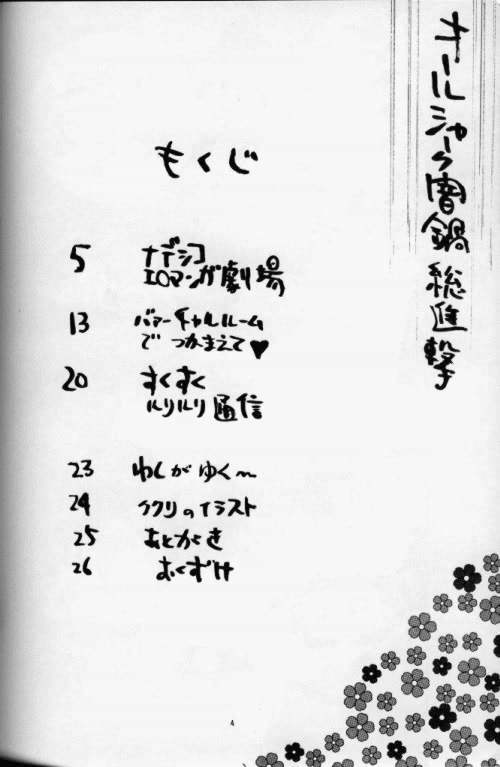 オールジャーク闇鍋総進撃
もくじ
5 ナデシコ
エロマンガ劇場
13 バァーチャルルーム
で つかまえて♥
20 すくすく
ルリルリ通信
23 わしがゆく～
24 ククリのイラスト
25 あとがき
26 おくずけ
4